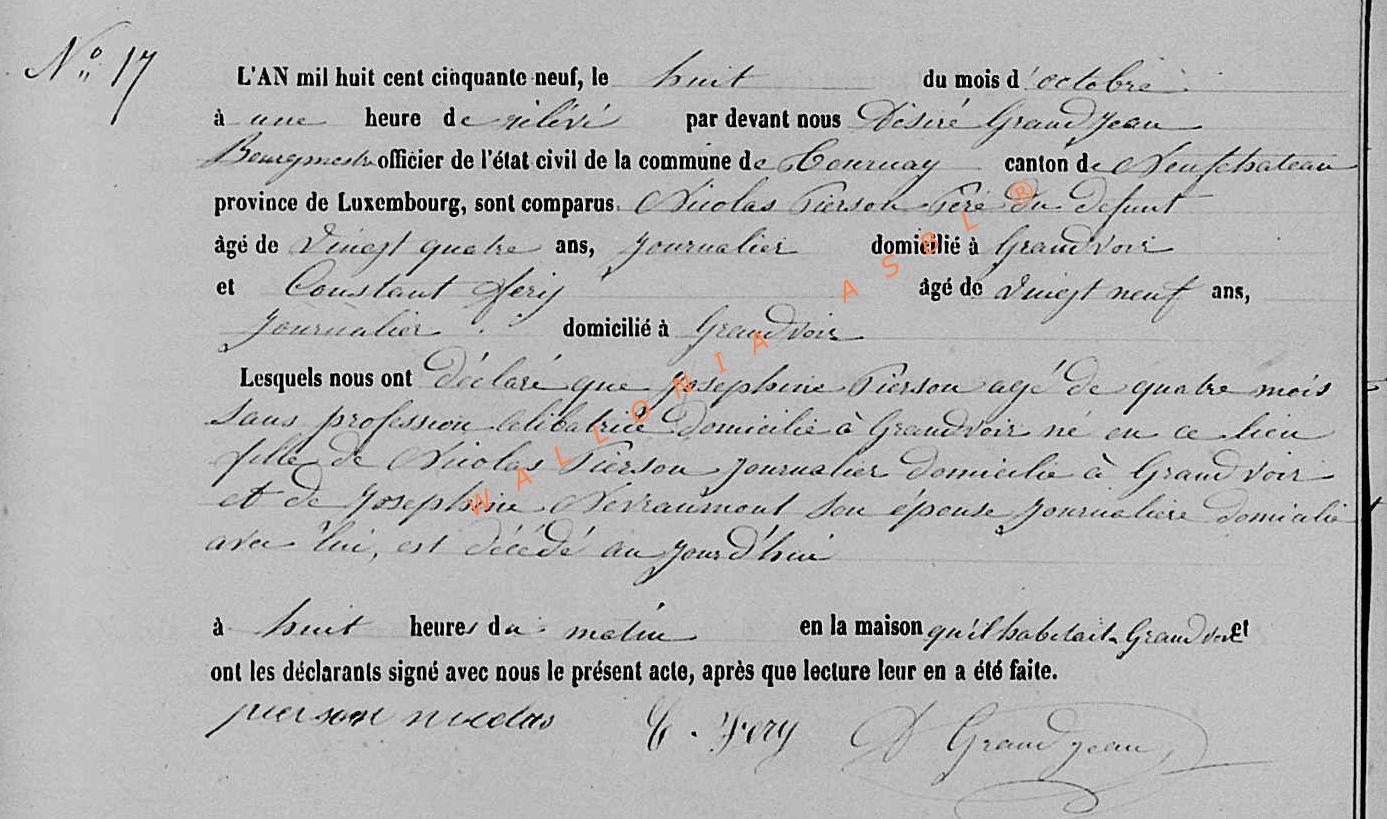 N° 17
L'AN mil huit cent cinquante neuf, le huit du mois d'octobre
à une heure de rélévé par devant nous Désiré Grandjean
Bourgmestre officier de l'état civil de la commune de Tournay canton de Neufchateau
province de Luxembourg, sont comparus Nicolas Pierson Père du defunt
âgé de vingt quatre ans, journalier domicilié à Grandvoir
et Constant Fery âgé de vingt neuf ans,
journalier domicilié à Grandvoir
Lesquels nous ont déclaré que Josephine Pierson agé de quatre mois
sans profession celibatrice domicilié à Grandvoir né en ce lieu
fille de Nicolas Pierson journalier domicilié à Grandvoir
et de Josephine Nevraumont son épouse journaliere domicilié
avec lui, est décédé au jourd'hui
à huit heures du matin en la maison qu'il habitait à Grandvoir et
ont les déclarants signé avec nous le présent acte, après que lecture leur en a été faite.
pierson nicolas C. Fery D Grandjean
WALLONIA ASBL ®